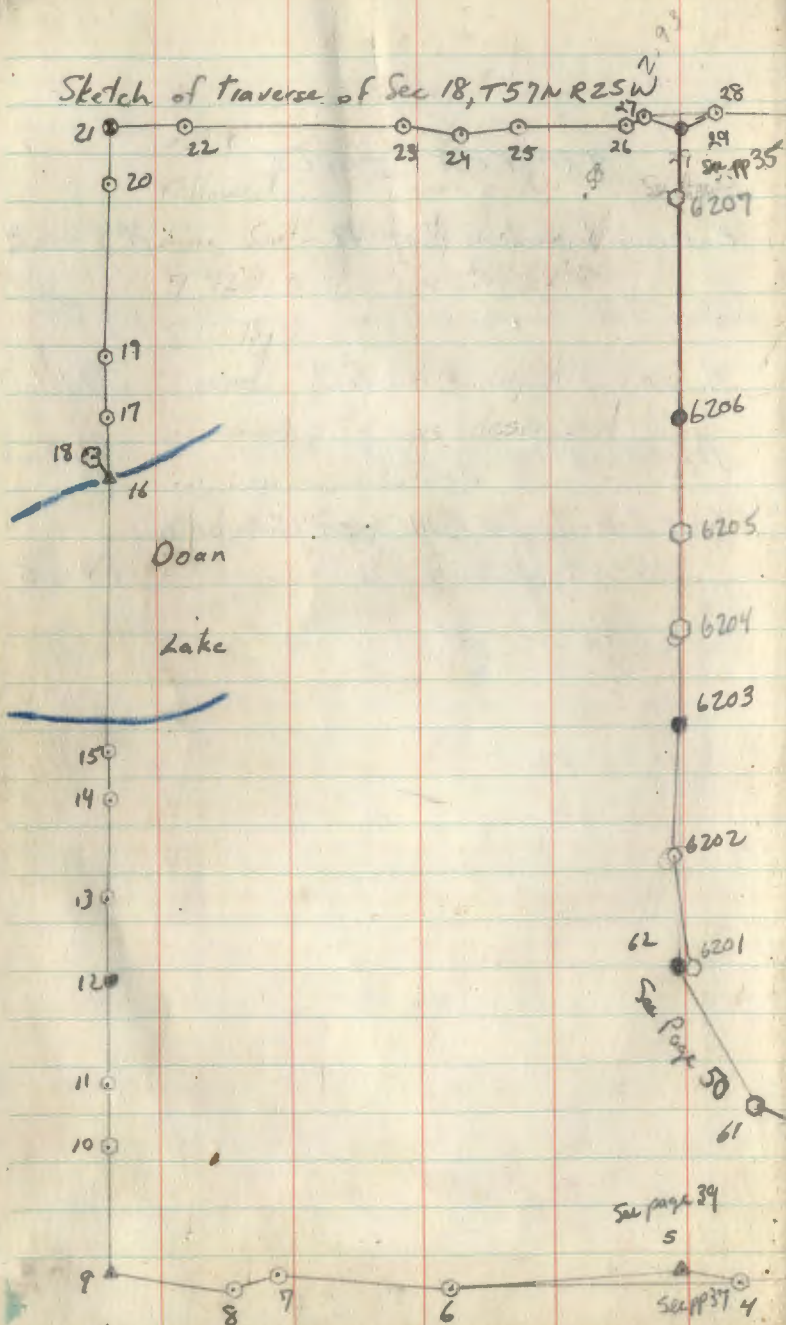 Sketch of Traverse of Sec 18, T57N R25W
21
22
23
24
25
26
27
28
29
See pp 35
20
6207
19
17
6206
18
16
Doan
6205
Lake
6204
6203
15
14
6202
13
62
6201
12
See Page 50
11
61
10
See page 39
5
9
8
7
6
See pp 37
4